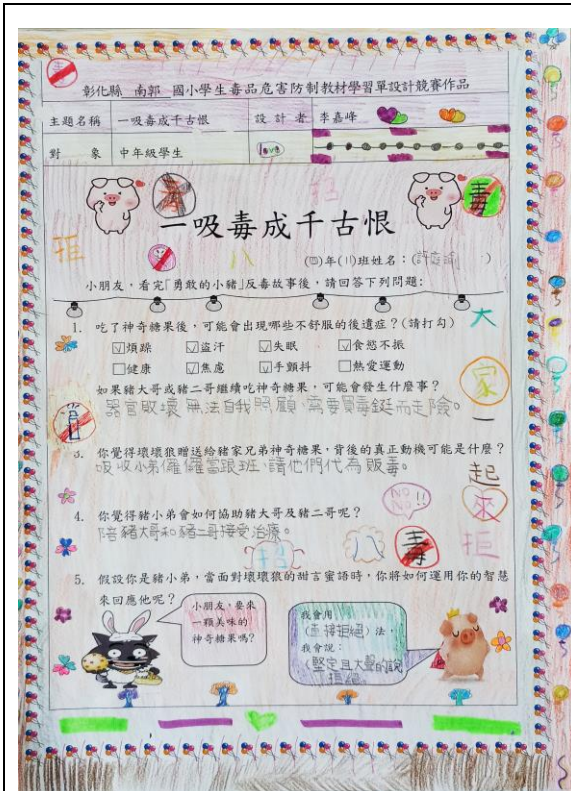 彰化縣 南郭 國小學生毒品危害防制教材學習單設計競賽作品
主題名稱 一吸毒成千古恨 設計者 李嘉峰
對象 中年級學生 love
毒 招 毒
一吸毒成千古恨
拒 八
(四)年(八)班姓名:(許庭 )
小朋友,看完「勇敢的小豬」反毒故事後,請回答下列問題:
1. 吃了神奇糖果後,可能會出現哪些不舒服的後遺症?(請打勾)
☑煩躁 ☑盜汗 ☑失眠 ☑食慾不振
□健康 ☑焦慮 ☑手顫抖 □熱愛運動
如果豬大哥或豬二哥繼續吃神奇糖果,可能會發生什麼事?
器官敗壞無法自我照顧,需要買毒鋌而走險。
3. 你覺得壞壞狼贈送給豬家兄弟神奇糖果,背後的真正動機可能是什麼?
吸收小弟儸儸當跟班,讓他們代為販毒。
4. 你覺得豬小弟會如何協助豬大哥及豬二哥呢?
陪豬大哥和豬二哥接受治療。
5. 假設你是豬小弟,當面對壞壞狼的甜言蜜語時,你將如何運用你的智慧
來回應他呢?
小朋友,要來
一顆美味的
神奇糖果嗎?
我會用
(直接拒絕)法,
我會說:
(堅定且大聲的說
拒絕
大
家
一
起
來
拒
No
No!!
招
八
毒